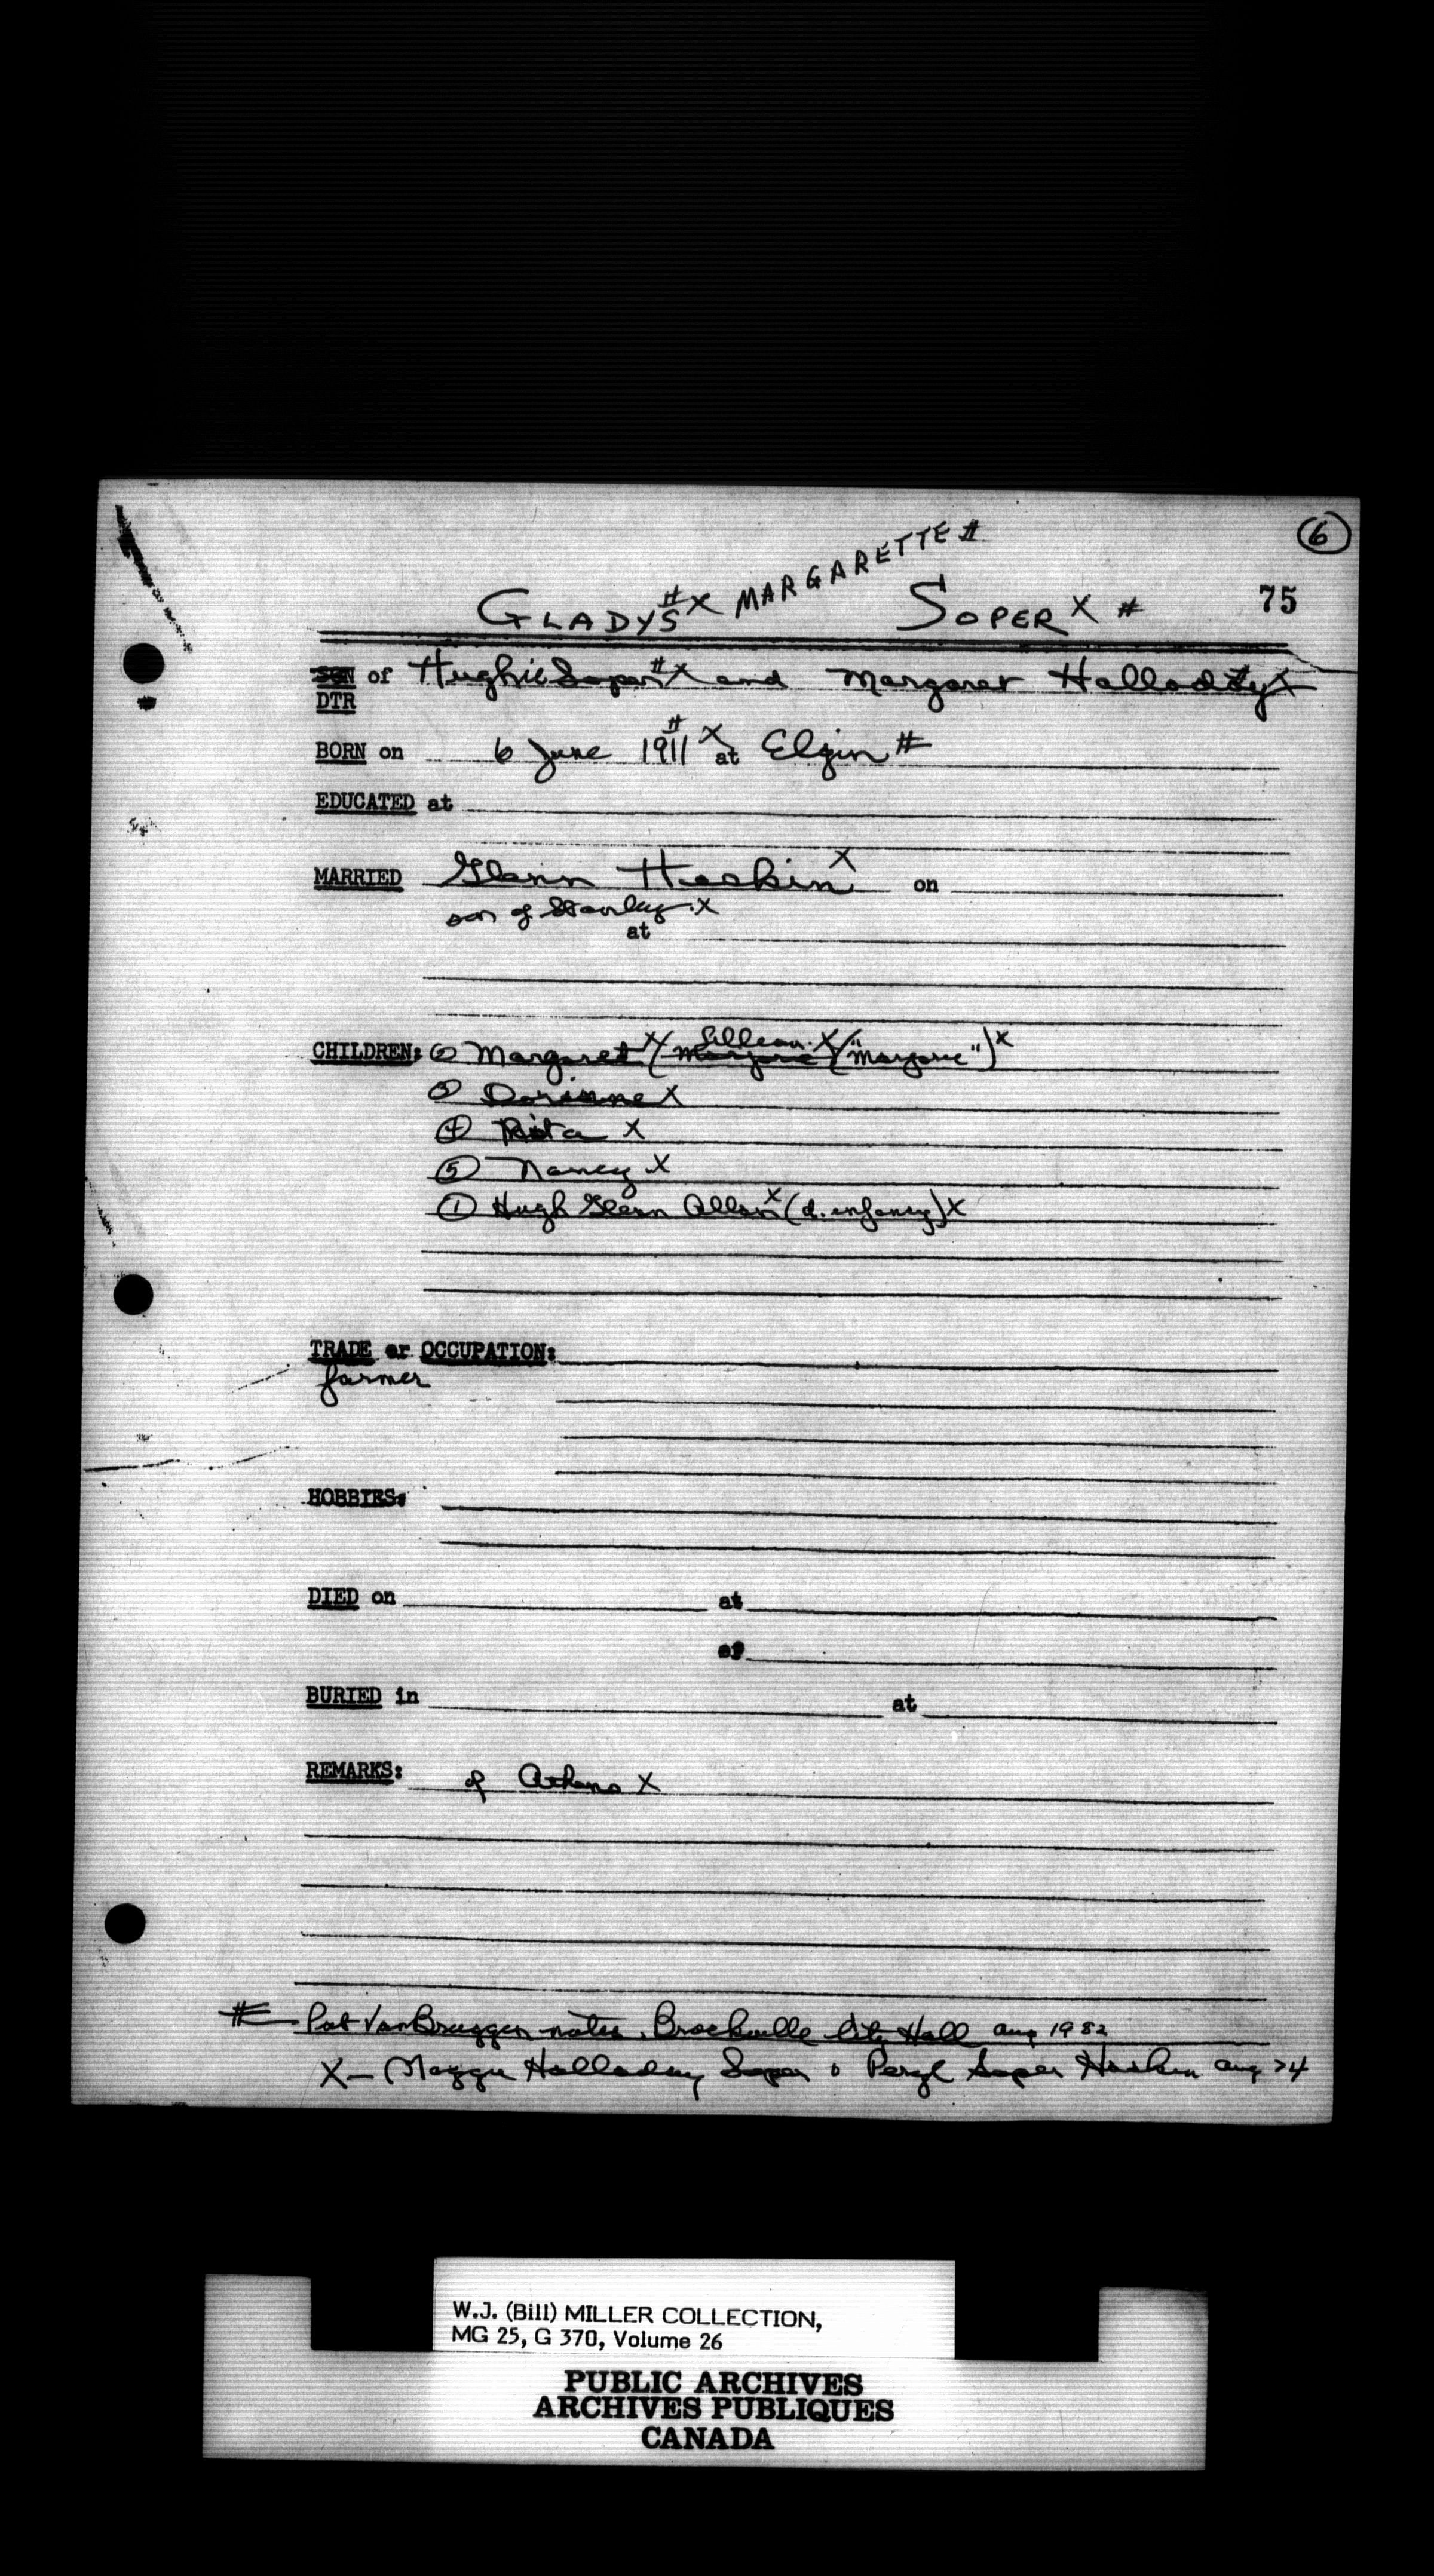 6
75
GLADYS #X MARGARETTE # SOPER X #
SON of Hughie Soper #X and Margaret Halladay X
DTR
BORN on 6 June 1911 #X at Elgin #
EDUCATED at
MARRIED Glenn Haskin X on
son of Stanley. X
at
CHILDREN: ② Margaret X (Marjorie Lillean. X ("Marjorie") X
③ Dorinne X
④ Rita X
⑤ Nancy X
① Hugh Glenn Allan X (d. infancy) X
TRADE or OCCUPATION:
farmer
HOBBIES:
DIED on at
of
BURIED in at
REMARKS: of Athens X
# Pat VanBruggen notes, Brockville City Hall Aug 1982
X – Maggie Halladay Soper & Soper Haskin Aug 74
W.J. (Bill) MILLER COLLECTION,
MG 25, G 370, Volume 26
PUBLIC ARCHIVES
ARCHIVES PUBLIQUES
CANADA